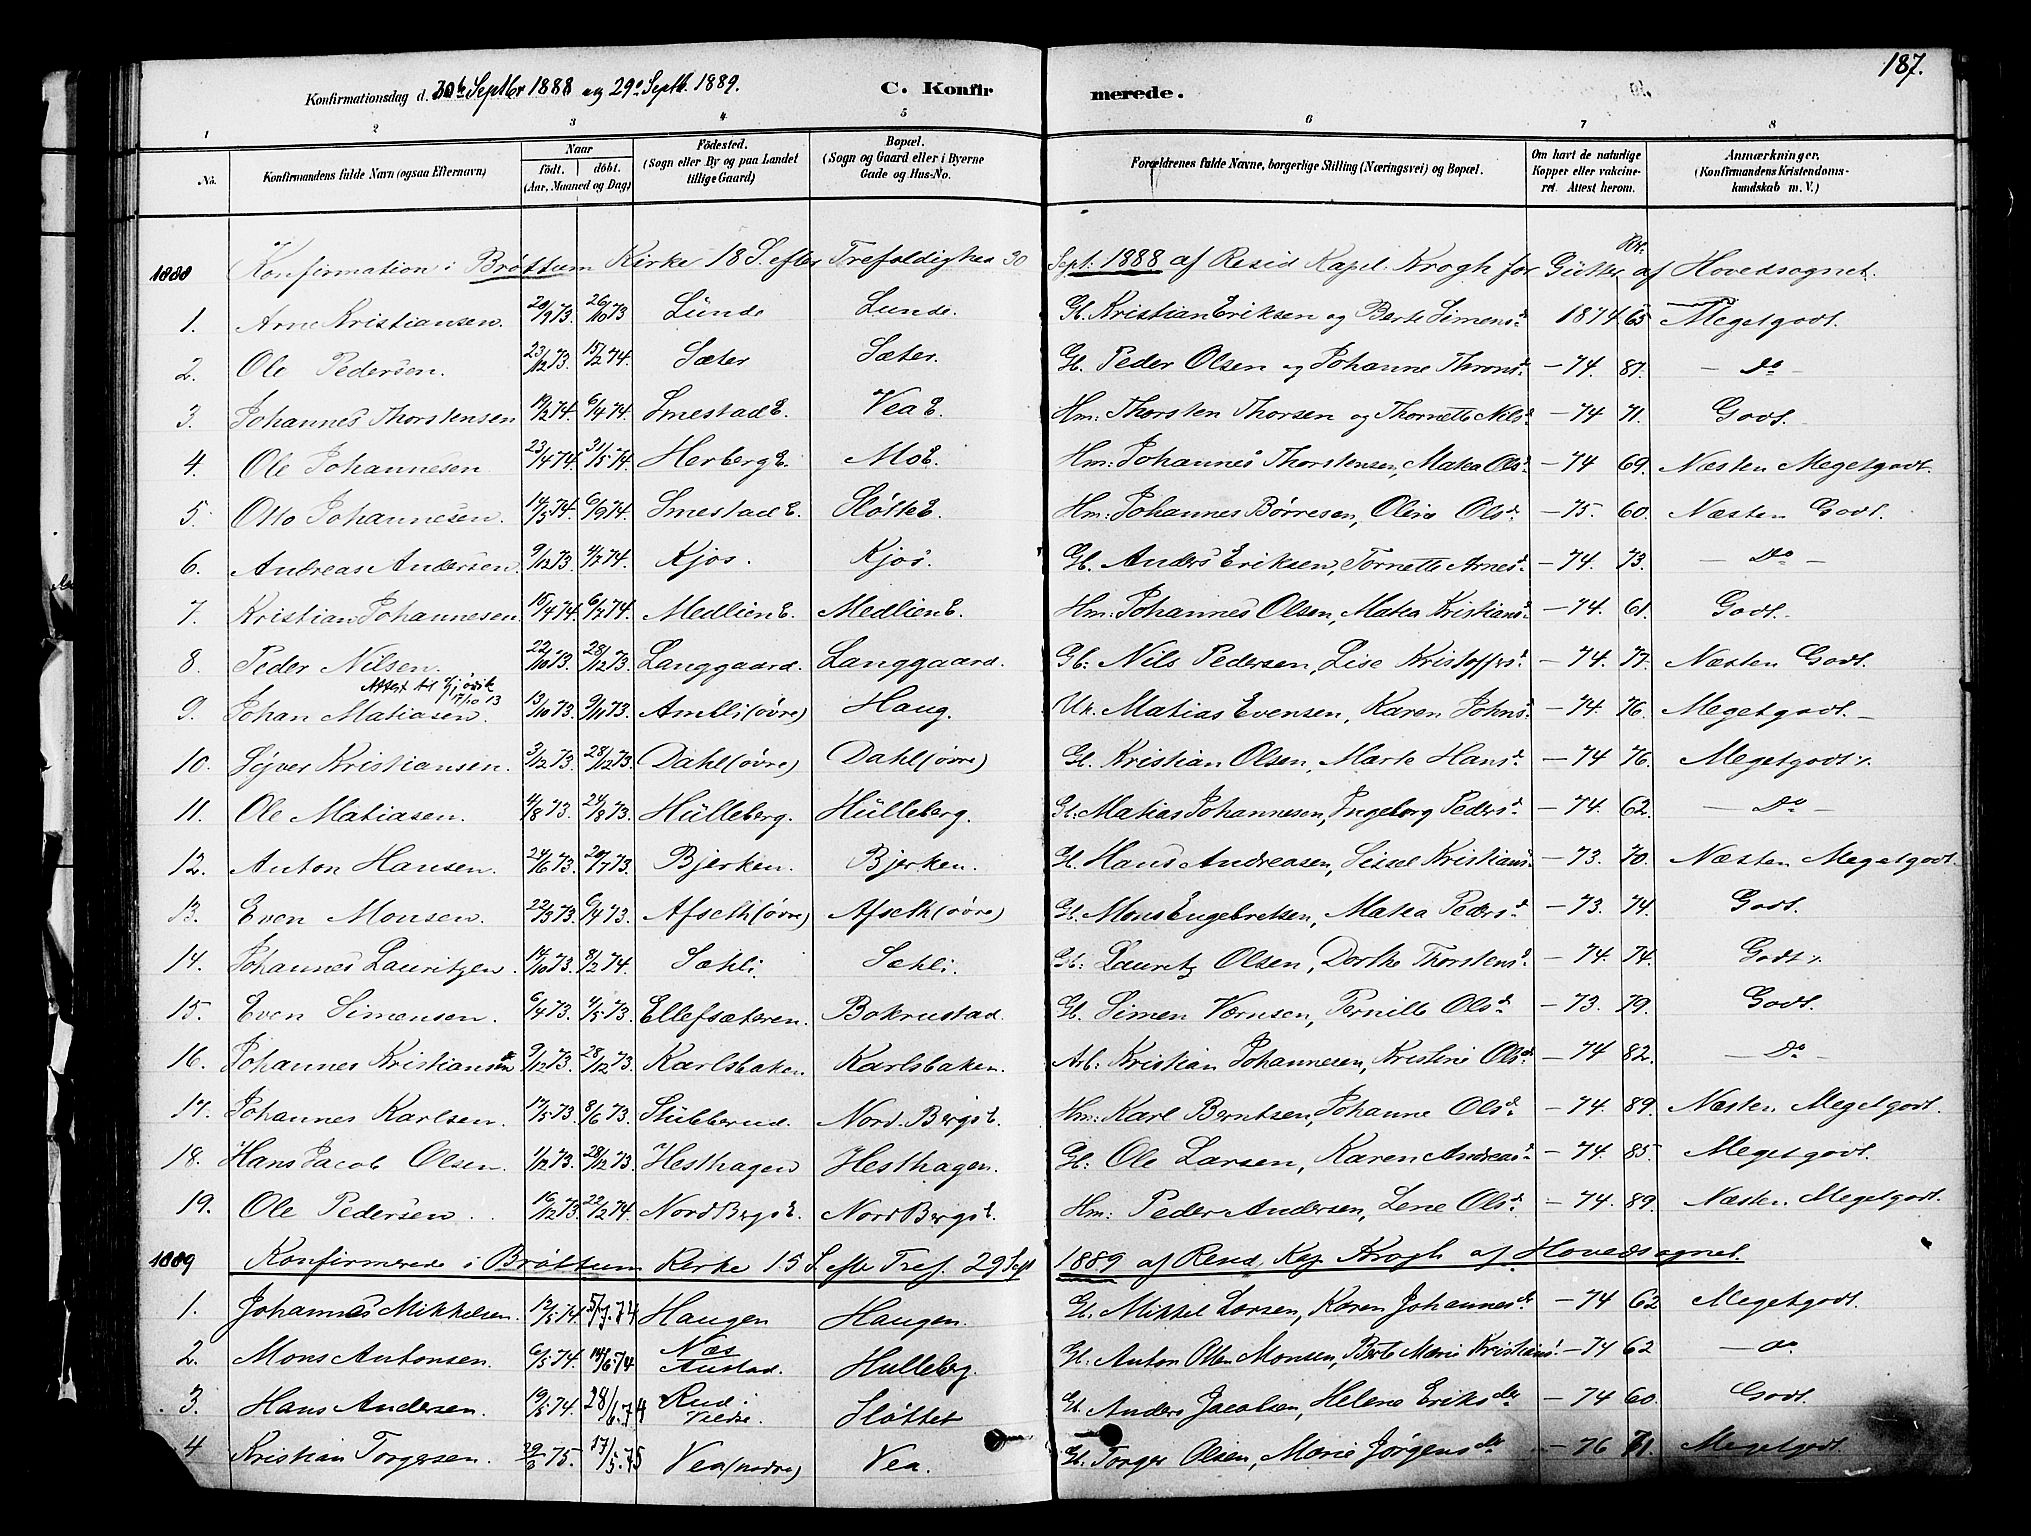 187.
Konfirmationsdag d. 30te Septbr 1888 og 29de Septb. 1889.
C. Konfirmerede.
1 2 3 4 5 6 7 8
No. Konfirmandens fulde Navn (ogsaa Efternavn) Naar født. døbt. (Aar, Maaned og Dag) Fødested. (Sogn eller By og paa Landet tillige Gaard) Bopæl. (Sogn og Gaard eller i Byerne Gade og Hus-No.) Forældrenes fulde Navne, borgerlige Stilling (Næringsvei) og Bopæl. Om havt de naturlige Kopper eller vakcineret. Attest herom. Anmærkninger. (Konfirmandens Kristendomskundskab m. V.)
1888 Konfirmation i Brøttum Kirke 18 S. efter Trefoldighed 30 Sept. 1888 af Resid Kapel. Krogh for Gutter af Hovedsognet.
1. Arne Kristiansen. 20/9 73. 26/10 73 Lunde Lunde. Gb. Kristian Eriksen og Berte Simensd. 1874 65 Megetgodt.
2. Ole Pedersen. 23/12 73. 15/2 74. Sæter Sæter. Gb. Peder Olsen og Johanne Thronsd. — 74. 87. — Do —
3. Johannes Thorstensen 17/2 74. 6/4 74. Smestad E. Vea E. Hm: Thorsten Thorsen og Thornette Nilsd. — 74 71. Godt.
4. Ole Johannesen 23/4 74. 31/5 74. Herberg E. Mo E. Hm: Johannes Thorstensen, Matea Olsd. — 74 69. Næsten Megetgodt.
5. Otto Johannesen. 14/5 74. 6/9 74. Smestad E. Sløtte E. Hm: Johannes Børresen, Oline Olsd. — 75. 60. Næsten Godt.
6. Andreas Andersen. 9/12 73. 4/2 74. Kjos. Kjos. Gb. Anders Eriksen, Tornette Arnesd. — 74. 73. — Do —
7. Kristian Johannesen 15/4 74. 6/7 74. Medlien E. Medlien E. Hm: Johannes Olsen, Matea Kristiansd. — 74. 61. Godt.
8. Peder Nilsen. 22/10 73. 28/12 73. Langgaard. Langgaard. Gb: Nils Pedersen, Lise Kristoffersd. — 74. 77. Næsten Godt.
Attest til Gjøvik 17/10 13
9. Johan Matiasen. 13/10 73. 9/11 73. Amlli (øvre) Haug. Matias Evensen, Karen Johnsd. — 74. 76. Megetgodt. —
10. Syver Kristiansen. 3/12 73. 28/12 73. Dahl (øvre) Dahl (øvre) Gb. Kristian Olsen, Marte Hansd. — 74 76. Megetgodt.
11. Ole Matiasen. 4/8 73. 24/8 73. Hulleberg. Hulleberg. Gb: Matias Johannesen, Ingeborg Pedersd. — 74. 62. — Do —
12. Anton Hansen. 24/6 73. 20/7 73. Bjerken. Bjerken. Gb. Hans Andreasen, Sissel Kristiansd. — 73. 70. Næsten Megetgodt.
13. Even Monsen. 22/3 73. 6/4 73. Afseth (øvre) Afseth (øvre) Gb. Mons Engebretsen, Matea Pedersd. — 73. 74. Godt.
14. Johannes Lauritzen. 14/10 73. 8/2 74. Sæhli. Sæhli. Gb: Lauritz Olsen, Dorthe Thorstensd. — 74. 74. Godt.
15. Even Simensen. 6/4 73. 4/5 73. Ellefsæteren. Bakrustad. Gb. Simen Pernille Olsd. — 73. 79. Godt.
16. Johannes Kristiansen 9/12 73. 28/12 73. Karlsbaken Karlsbaken. Arb: Kristian Johannesen, Kristine Olsd. — 74 82. — Do —
17. Johannes Karlsen. 17/5 73. 8/6 73. Stubberud. Nord. Bergs E. Hm: Karl Berntsen, Johanne Olsd. — 74. 89. Næsten Megetgodt.
18. Hans Jacob Olsen. 1/12 73. 28/12 73. Hesthagen Hesthagen. Gb: Ole Larsen, Karen Andreasd. — 74. 85. Megetgodt.
19. Ole Pedersen. 16/12 73. 22/2 74. Nord Bergs E. Nord Bergs E. Hm: Peder Andersen, Lene Olsd. — 74. 89. Næsten Megetgodt.
1889 Konfirmerede i Brøttum Kirke 15 S. efter Tref. 29 Sept 1889 af Resid. Kap Krogh af Hovedsognet.
1. Johannes Mikkelsen. 12/5 74. 5/7. 74 Haugen Haugen. Gb. Mikkel Larsen, Karen Johannesdr. — 74 62 Megetgodt.
2. Mons Antonsen. 6/5 74. 14/6. 74 Næs Austad. Hulleberg. Gb. Anton Olsen Monsen, Berte Marie Kristiansd. — 74 62 — do
3. Hans Andersen. 19/5 74. 28/6. 74 Rud. Vedre. Sløttet Gb. Anders Jacobsen, Helene Eriksdr — 74 60. Godt.
4 Kristian Torgersen. 29/3 75. 17/5. 75 Vea (nedre) Vea. Gb. Torger Olsen, Marie Jørgensdr — 76 71. Megetgodt.